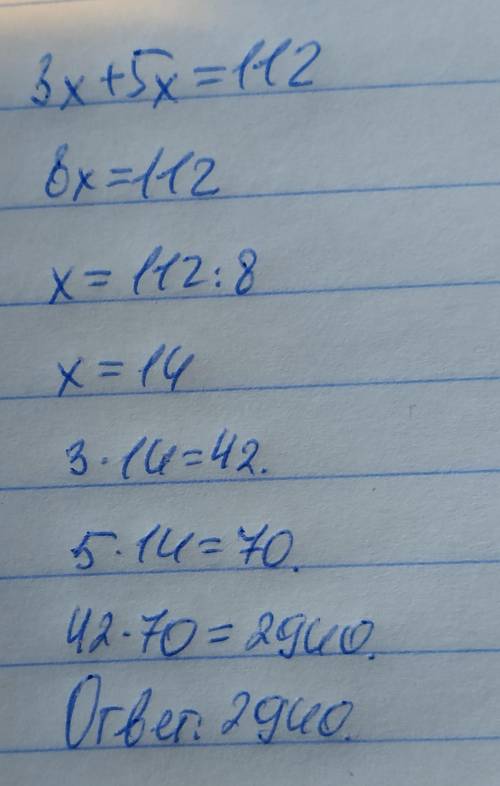 3x+5x=112
8x=112
x=112:8
x=14
3·14=42.
5·14=70.
42·70=2940.
Ответ: 2940.